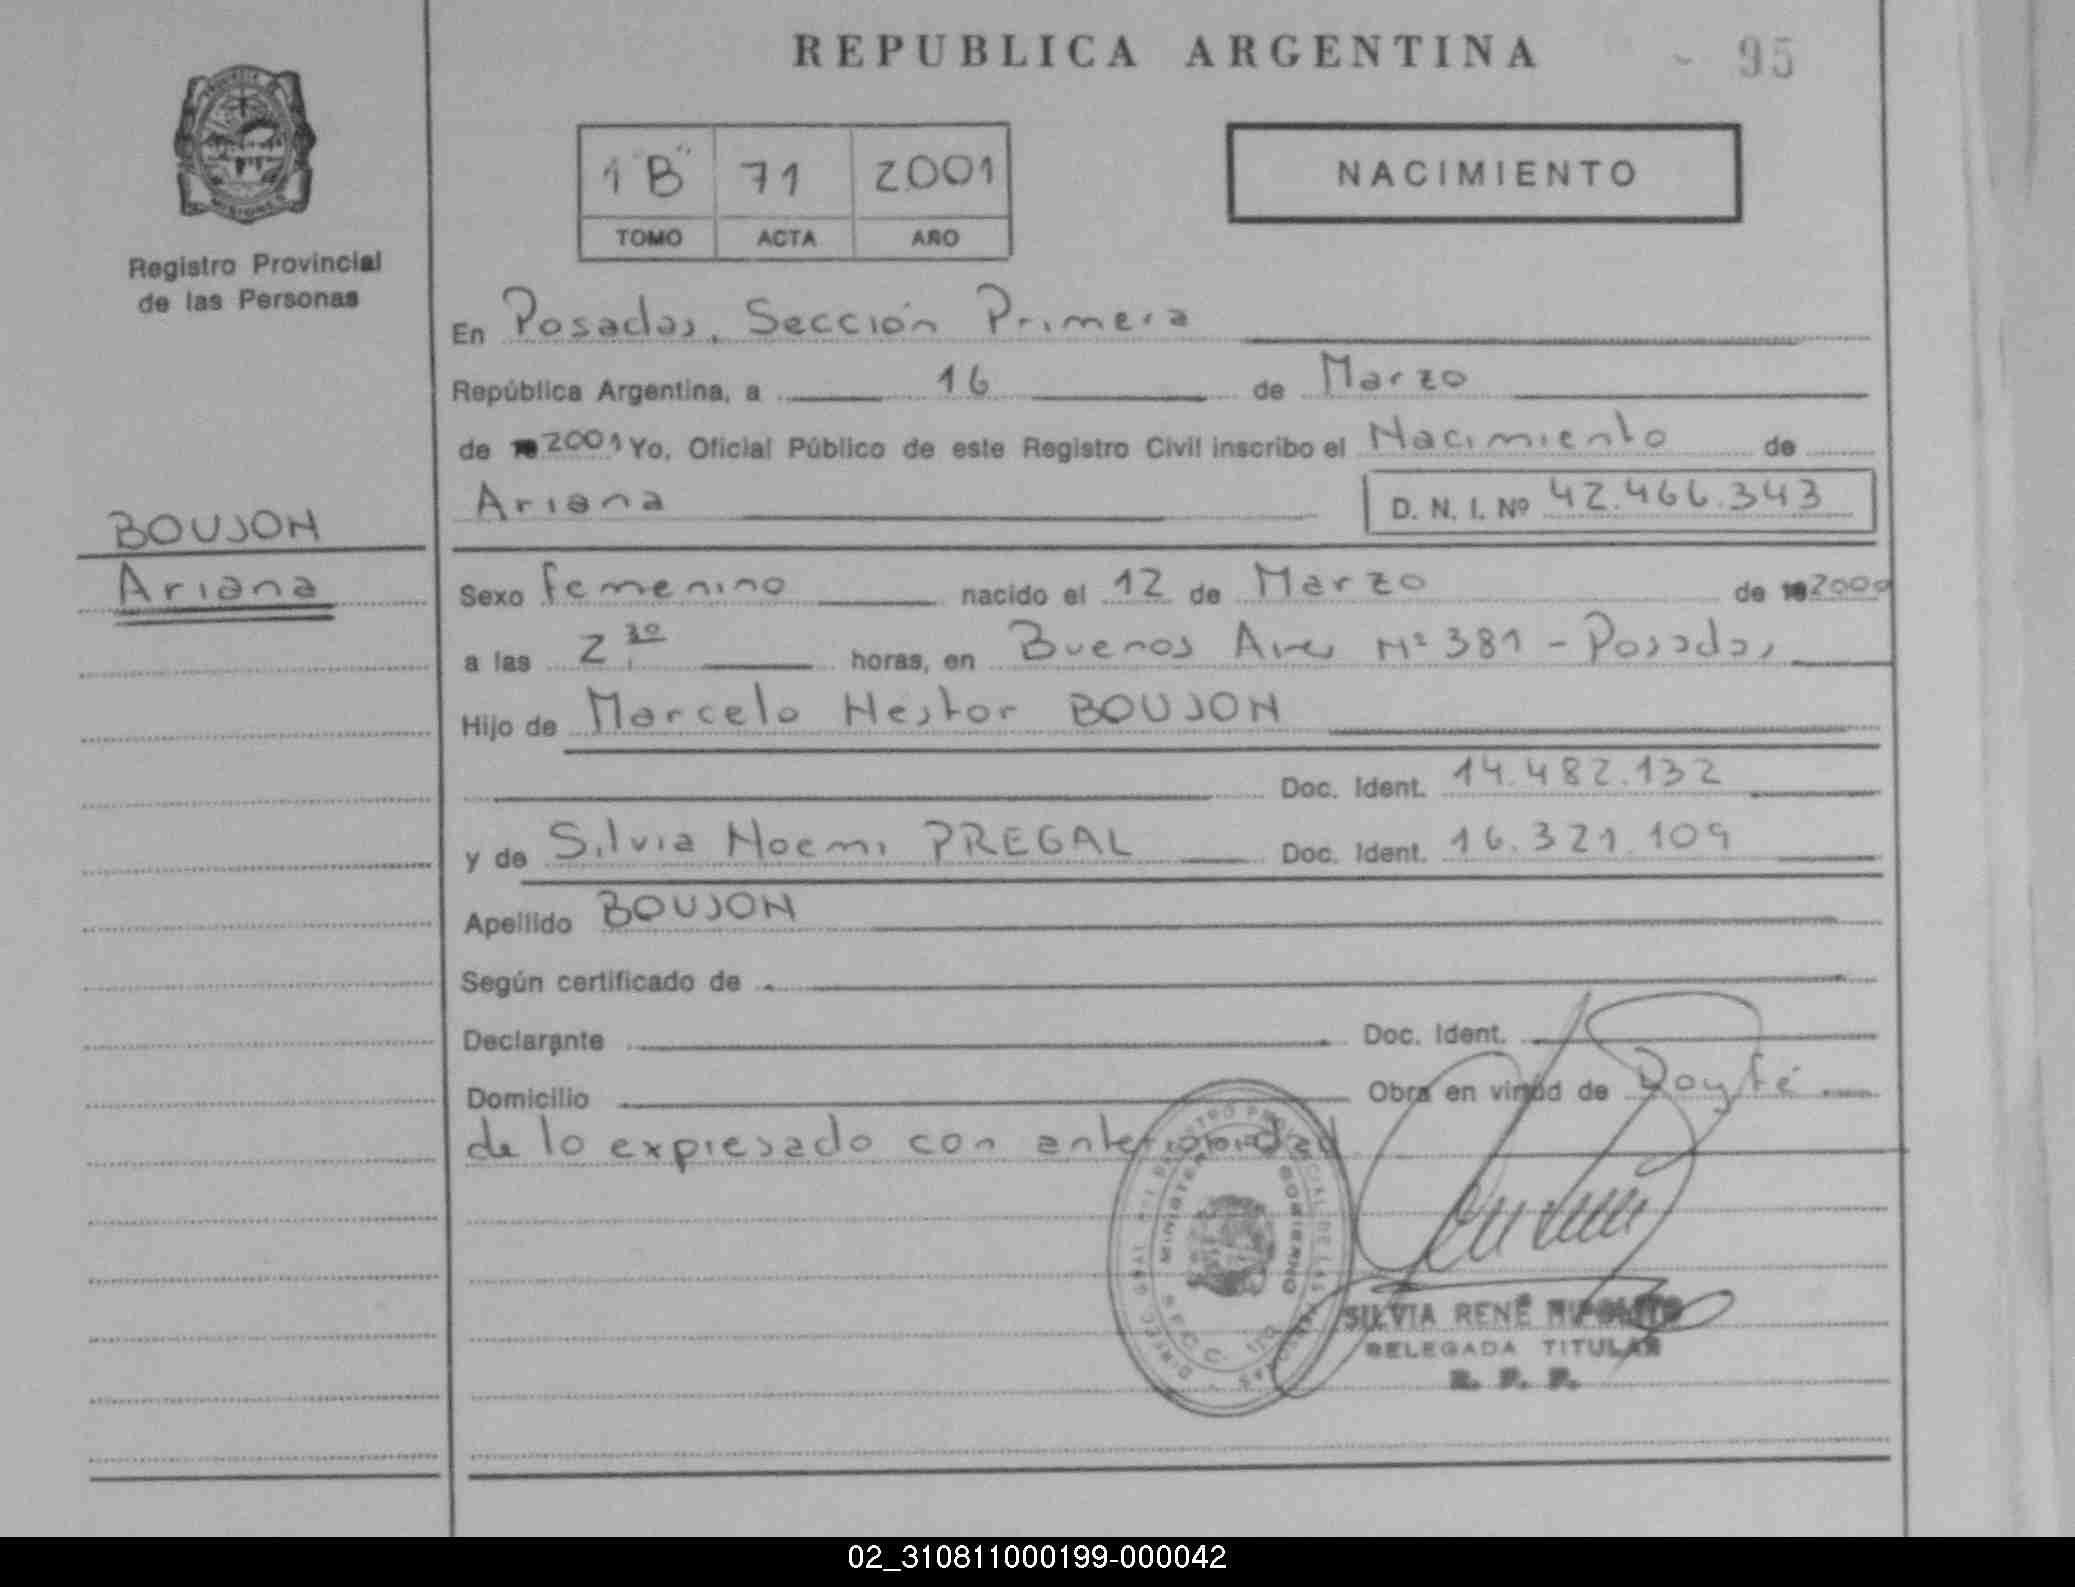 REPUBLICA ARGENTINA
95
PROVINCIA DE MISIONES
Registro Provincial
de las Personas
1 "B" 71 2001
TOMO ACTA AÑO
NACIMIENTO
En Posadas, Sección Primera
República Argentina, a 16 de Marzo
de 2001 Yo, Oficial Público de este Registro Civil inscribo el Nacimiento de
Ariana
D. N. I. Nº 42.466.343
BOUJON
Ariana
Sexo femenino nacido el 12 de Marzo de 2000
a las 2 30 horas, en Buenos Aires Nº 381 - Posadas,
Hijo de Marcelo Nestor BOUJON
Doc. Ident. 14.482.132
y de Silvia Noemi PREGAL Doc. Ident. 16.321.109
Apellido BOUJON
Según certificado de
Declarante Doc. Ident.
Domicilio Obra en virtud de Doy fé
de lo expresado con anterioridad
MINISTERIO GOBIERNO
SILVIA RENÉ
DELEGADA TITULAR
R. P. P.
02_310811000199-000042